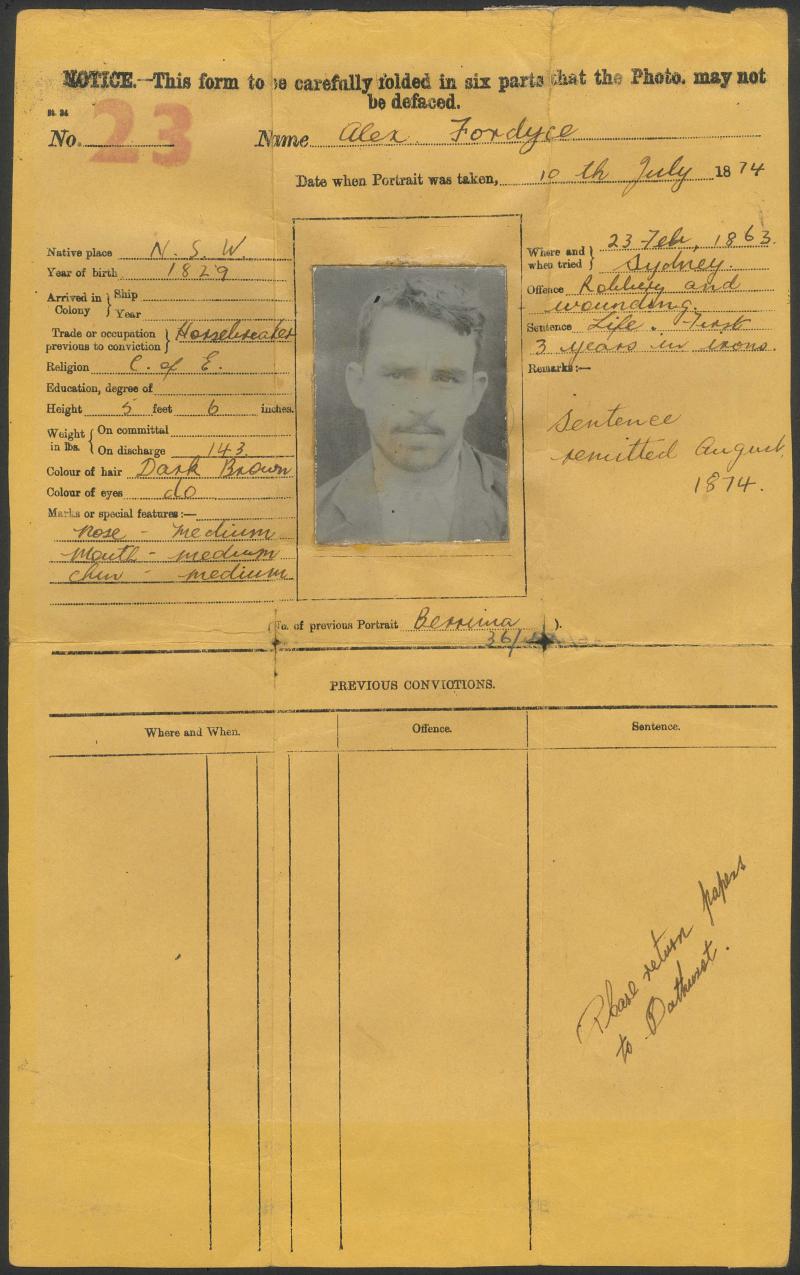 NOTICE.—This form to be carefully folded in six parts that the Photo. may not
be defaced.
No. 23
Name Alex Fordyce
Date when Portrait was taken, 10th July 1874
Native place N. S. W.
Year of birth 1829
Arrived in Colony } Ship
Year
Trade or occupation previous to conviction } Horsebreaker
Religion C. of E.
Education, degree of
Height 5 feet 6 inches.
Weight in lbs. { On committal
On discharge 143
Colour of hair Dark Brown
Colour of eyes do
Marks or special features:—
Nose - medium
Mouth - medium
Chin - medium
Where and when tried } 23 Feb, 1863.
Sydney.
Offence Robbery and
wounding.
Sentence Life. First
3 years in irons.
Remarks:—
Sentence
remitted August,
1874.
(No. of previous Portrait Berrima ).
36/
PREVIOUS CONVICTIONS.
Where and When. Offence. Sentence.
Please return papers
to Bathurst.